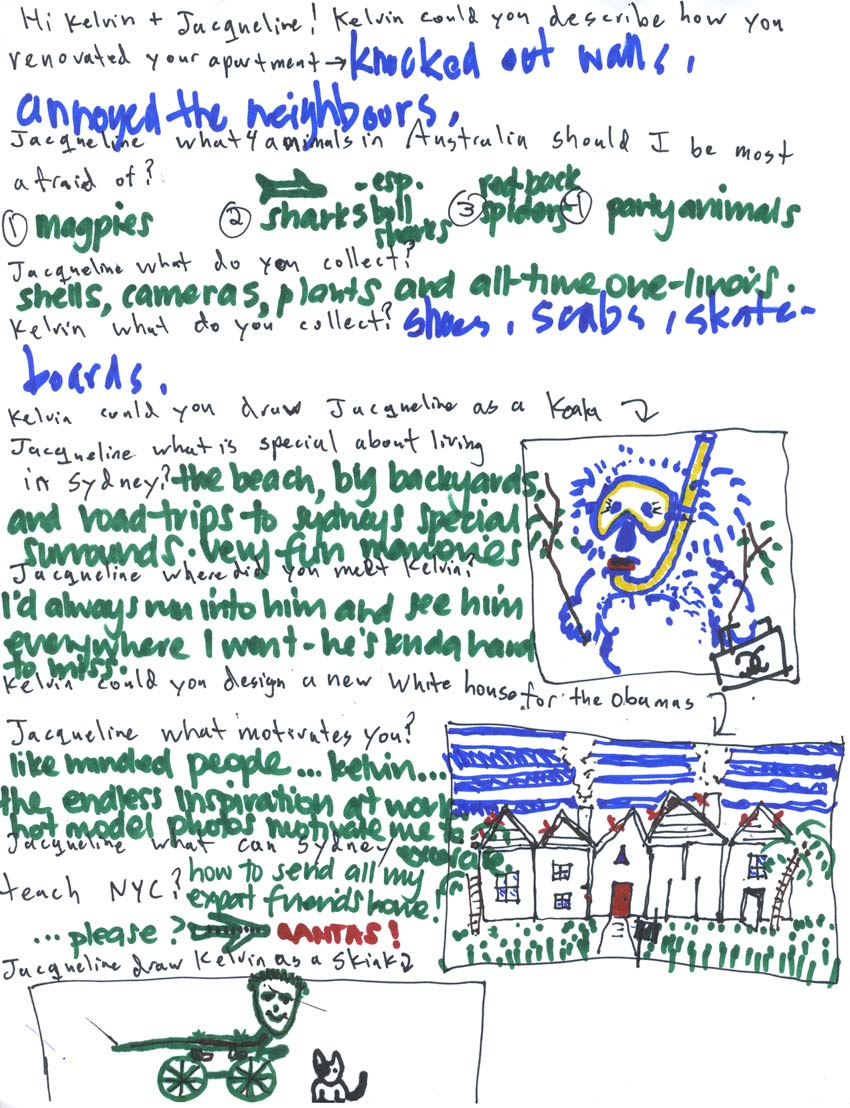 Hi Kelvin + Jacqueline! Kelvin could you describe how you
renovated your apartment → knocked out walls,
annoyed the neighbours.
Jacqueline what 4 animals in Australia should I be most
afraid of?
① magpies ② sharks - esp. bull sharks ③ red back spiders ④ party animals
Jacqueline what do you collect?
shells, cameras, plants and all-time one-linors.
Kelvin what do you collect? shoes, scabs, skate-
boards.
Kelvin could you draw Jacqueline as a Koala
Jacqueline what is special about living
in Sydney? the beach, big backyards,
and road-trips to sydneys special
surrounds. very fun memories
Jacqueline where did you meet Kelvin?
I'd always run into him and see him
everywhere I went - he's kinda hard
to miss.
Kelvin could you design a new White house for the Obamas
Jacqueline what motivates you?
like minded people ... kelvin...
the endless inspiration at work
hot model photos motivate me to
exercise.
Jacqueline what can Sydney
teach NYC? how to send all my
expat friends home!
... please? QANTAS!
Jacqueline draw Kelvin as a Skink